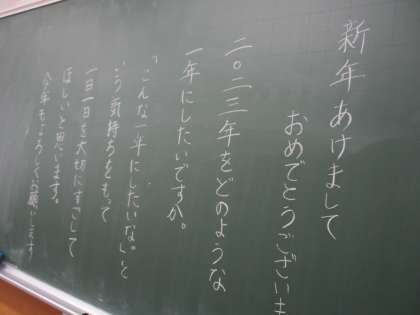 新年あけまして
おめでとうございま
二〇二三年をどのような
一年にしたいですか。
「こんな一年にしたいな。」と
いう気持ちをもって
一日一日を大切にすごして
ほしいと思います。
今年もよろしくお願いします